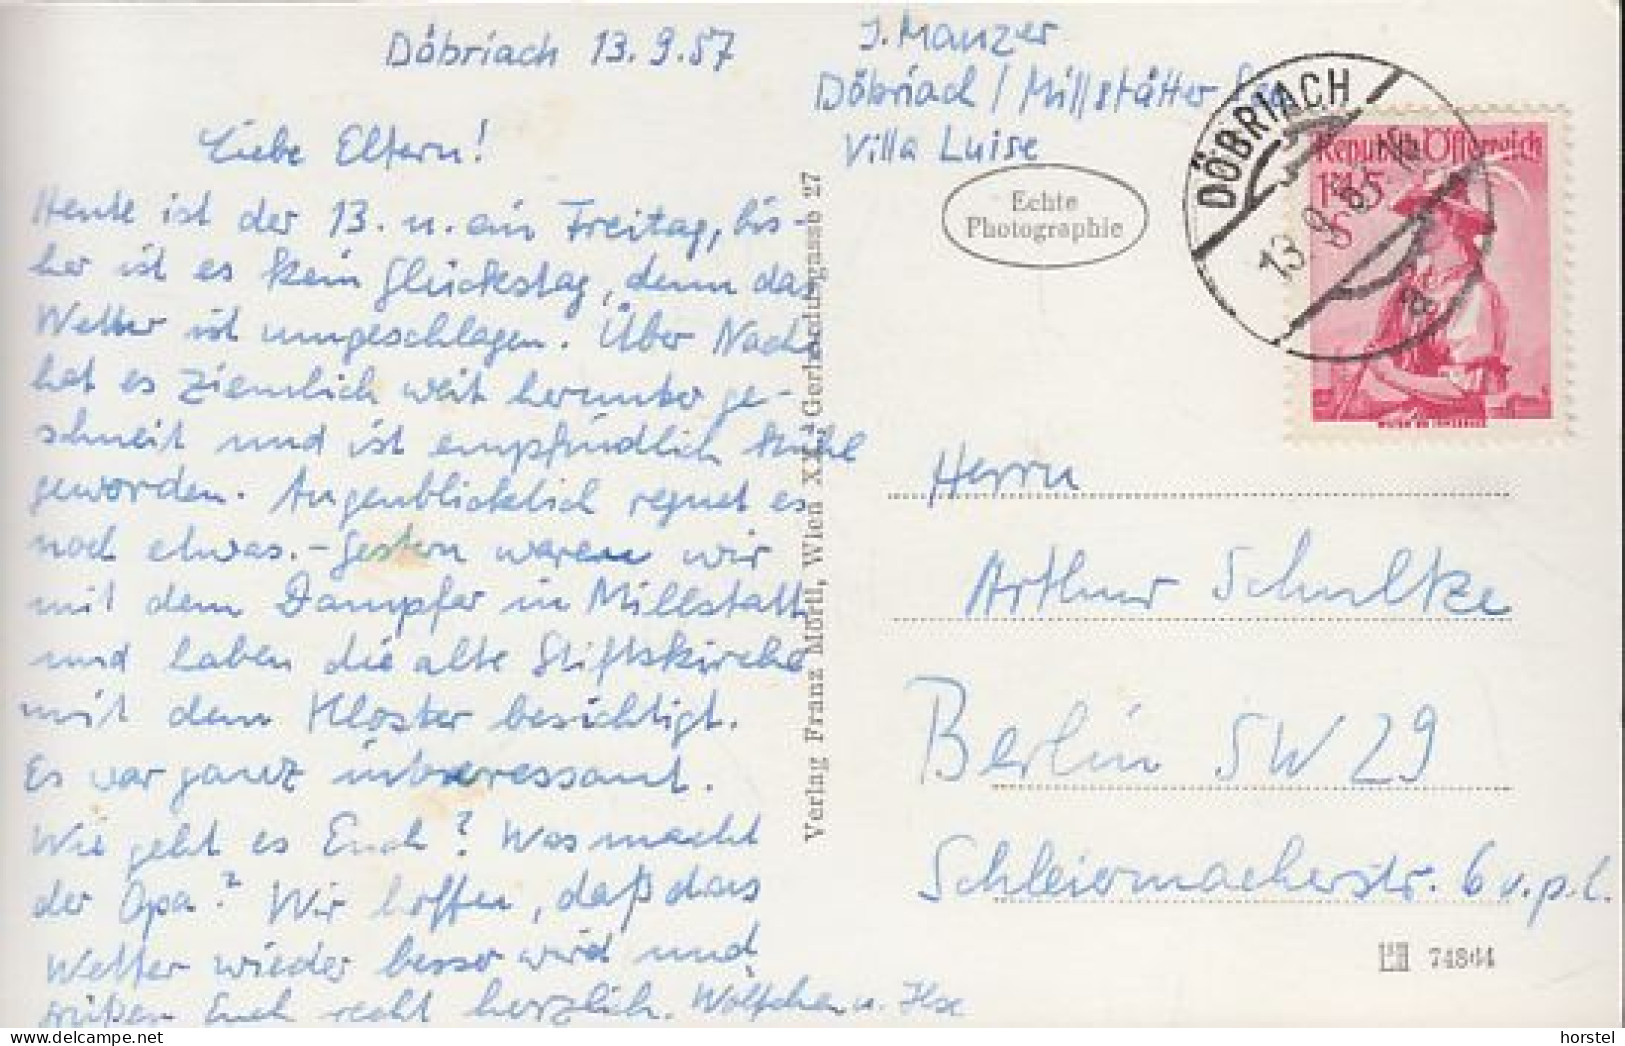 Döbriach 13.9.57
Liebe Eltern!
Heute ist der 13. u. ein Freitag, bis-
her ist es kein Glückstag, denn das
Wetter ist umgeschlagen. Über Nacht
hat es ziemlich weit herunter ge-
schneit und ist empfindlich kühl
geworden. Augenblicklich regnet es
noch etwas. - Gestern waren wir
mit dem Dampfer in Millstatt
und haben die alte Stiftskirche
mit dem Kloster besichtigt.
Es war ganz interessant.
Wie geht es Euch? Was macht
der Opa? Wir hoffen, daß das
Wetter wieder besser wird und
grüßen Euch recht herzlich. Wölfchen u. Ilse
Verlag Franz Mörtl, Wien XX, Gerhardusgasse 27
J. Manzer
Döbriach / Millstätter See
Villa Luise
Echte
Photographie
DÖBRIACH
13.9.57
a
Republik Österreich
1.45
S
Herrn
Arthur Schultke
Berlin SW 29
Schleiermacherstr. 6 v.p.l.
74864
horstel